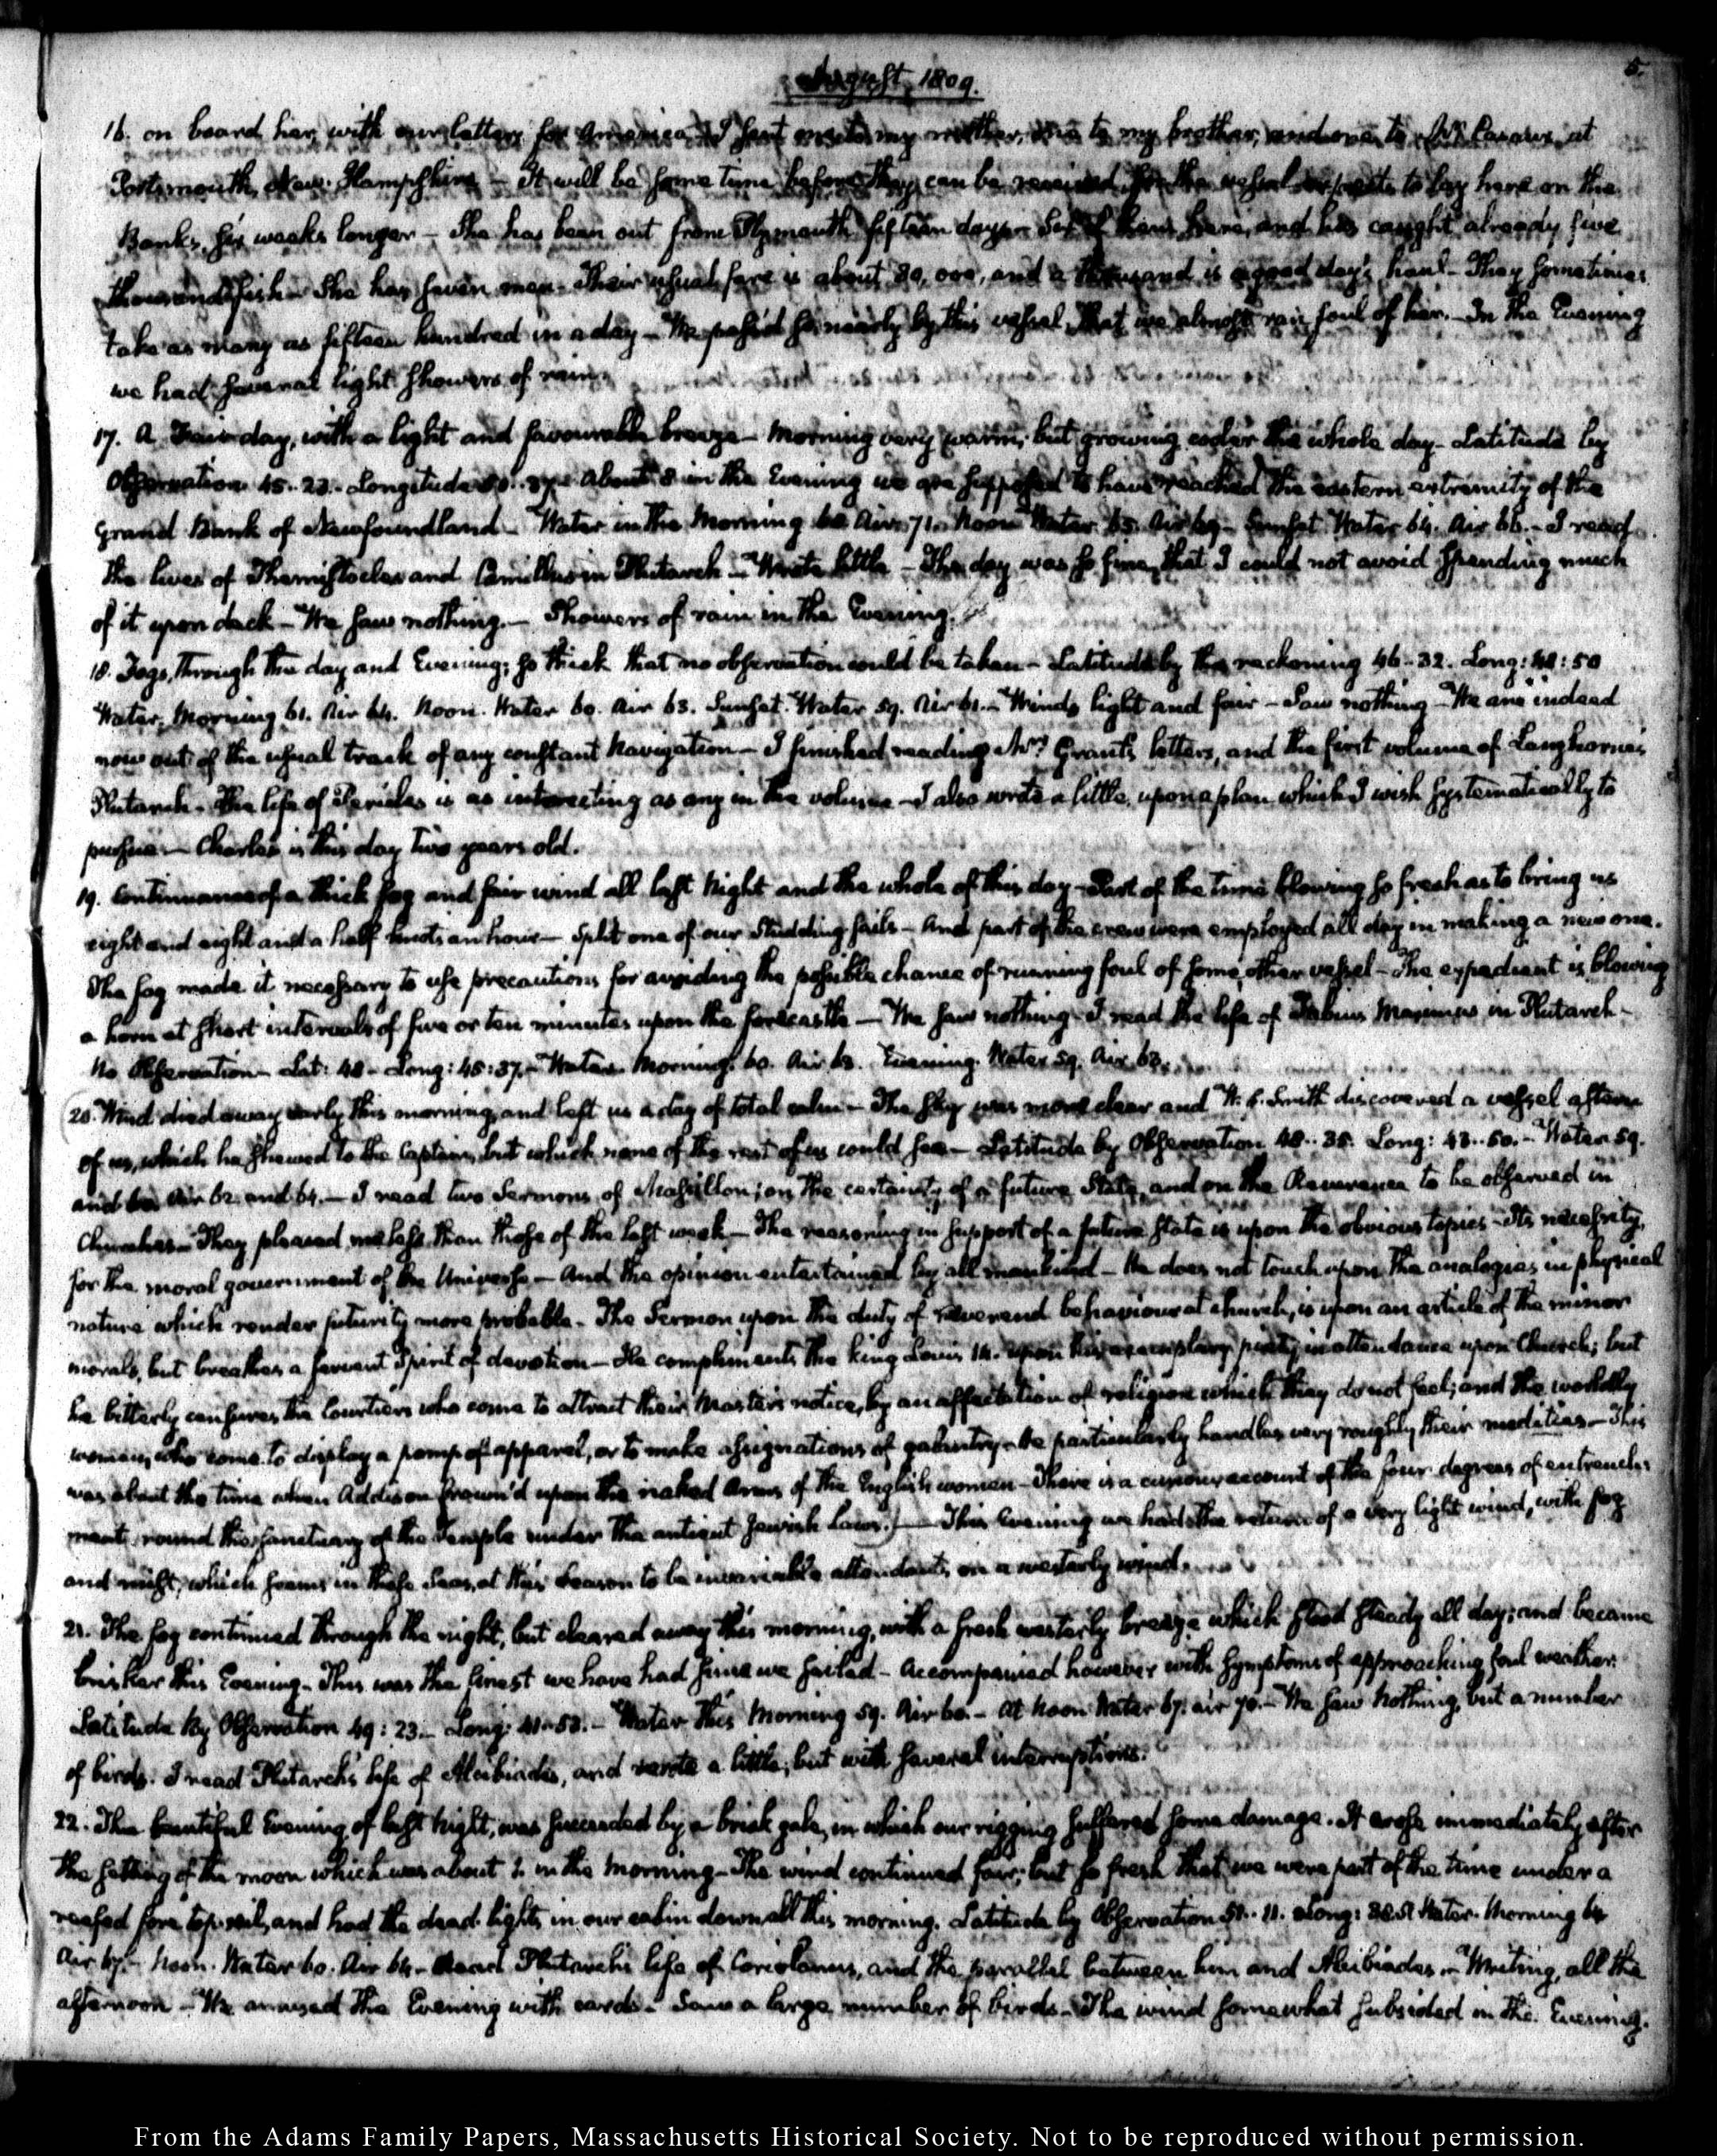 August 1809.
5.
16. on board her, with our letters for America. I sent one to my mother, one to my brother, and one to at
Portsmouth, New-Hampshire — It will be some time before they can be received for the vessel expects to lay here on the
Banks, six weeks longer — She has been out from Plymouth fifteen days — Six of them here, and has caught already five
thousand fish — She has seven men — Their usual fare is about 30,000, and a thousand is a good day's haul — They sometimes
take as many as fifteen hundred in a day — We pass'd so nearly by this vessel, that we almost ran foul of her. — In the Evening
we had several light showers of rain.
17. A Fair day, with a light and favourable breeze — Morning very warm, but growing cooler the whole day — Latitude by
Observation 45-23. Longitude About 8 in the Evening we are supposed to have reached the eastern extremity of the
Grand Bank of Newfoundland — Water in the Morning Air 71. Noon Water 65. Air 69 — Sunset Water 64. Air 66. — I read
the lives of Themistocles and Camillus in Plutarch — Wrote little — The day was so fine, that I could not avoid spending much
of it upon deck — We saw nothing. — Showers of rain in the Evening.
18. Fogs, through the day and Evening; so thick that no observation could be taken — Latitude by the reckoning 46-32. Long: 48:50
Water, Morning 61. Air 64. Noon. Water 60. Air 63. Sunset. Water 59. Air 61. — Winds light and fair — Saw nothing — We are indeed
now out of the usual track of any constant Navigation — I finished reading Mrs Grant's letters, and the first volume of Langhorne's
Plutarch — The life of Pericles is as interesting as any in the volume — I also wrote a little, upon a plan which I wish systematically to
pursue — Charles is this day two years old.
19. Continuance of a thick fog and fair wind all last Night and the whole of this day — Part of the time blowing so fresh as to bring us
eight and eight and a half knots an hour — Split one of our Studding sails — And part of the crew were employed all day in making a new one.
The fog made it necessary to use precautions for avoiding the possible chance of running foul of some other vessel — The expedient is blowing
a horn at short intervals of five or ten minutes upon the forecastle — We saw nothing — I read the life of Fabius Maximus in Plutarch —
No Observation — Lat: 48 — Long: 45:37. — Water. Morning. 60. Air 63. Evening. Water 59. Air 63.
20. Wind died away early this morning, and left us a day of total calm — The sky was more clear and W. S. Smith discovered a vessel astern
of us, which he shewed to the Captain, but which none of the rest of us could see — Latitude by Observation 48-35. Long: 43-50. — Water 59.
and 60 Air 62 and 64. — I read two Sermons of Massillon; on the certainty of a future State, and on the Reverence to be observed in
Churches — They pleased me less than those of the last week — The reasoning in support of a future state is upon the obvious topics — Its necessity,
for the moral government of the Universe — And the opinion entertained by all mankind — He does not touch upon the analogies in physical
nature which render futurity more probable — The Sermon upon the duty of reverend behaviour at church, is upon an article of the minor
morals, but breathes a fervent Spirit of devotion — He compliments the king Louis 14. upon his exemplary piety in attendance upon Church; but
he bitterly censures the Courtiers who come to attract their Master's notice, by an affectation of religion which they do not feel; and the worldly
women, who come to display a pomp of apparel, or to make assignations of gallantry — He particularly handles very roughly their nudities — This
was about the time when Addison frown'd upon the naked Arms of the English women — There is a curious account of the four degrees of entrench-
ment round the sanctuary of the Temple under the antient Jewish Laws.) — This Evening we had the return of a very light wind, with fog
and mist, which seems in these Seas, at this Season to be invariable attendants on a westerly wind.
21. The fog continued through the night, but cleared away this morning, with a fresh westerly breeze which stood steady all day; and became
brisker this Evening — This was the finest we have had since we sailed — Accompanied however with symptoms of approaching foul weather.
Latitude by Observation 49:23. — Long: 41-53. — Water this Morning 59. Air 60. — At Noon Water 67. air 70. — We saw Nothing, but a number
of birds. I read Plutarch's life of Alcibiades, and wrote a little; but with several interruptions.
22. The beautiful Evening of last Night, was succeeded by a brisk gale, in which our rigging suffered some damage. It arose immediately after
the setting of the moon which was about 2 in the Morning — The wind continued fair; but so fresh that we were part of the time under a
reefed fore top-sail, and had the dead lights in our cabin down all this morning. Latitude by Observation 51-11. Long: Water. Morning 64
Air 67. — Noon. Water 60. Air 64 — Read Plutarch's life of Coriolanus, and the parallel between him and Alcibiades. — Writing, all the
afternoon — We amused the Evening with cards. Saw a large number of birds — The wind somewhat subsided in the Evening.
From the Adams Family Papers, Massachusetts Historical Society. Not to be reproduced without permission.